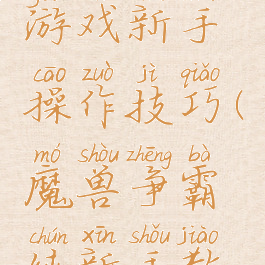 游戏新手
cāo zuò jì qiǎo
操作技巧(
mó shòu zhēng bà
魔兽争霸
chún xīn shǒu jiào
纯新手教